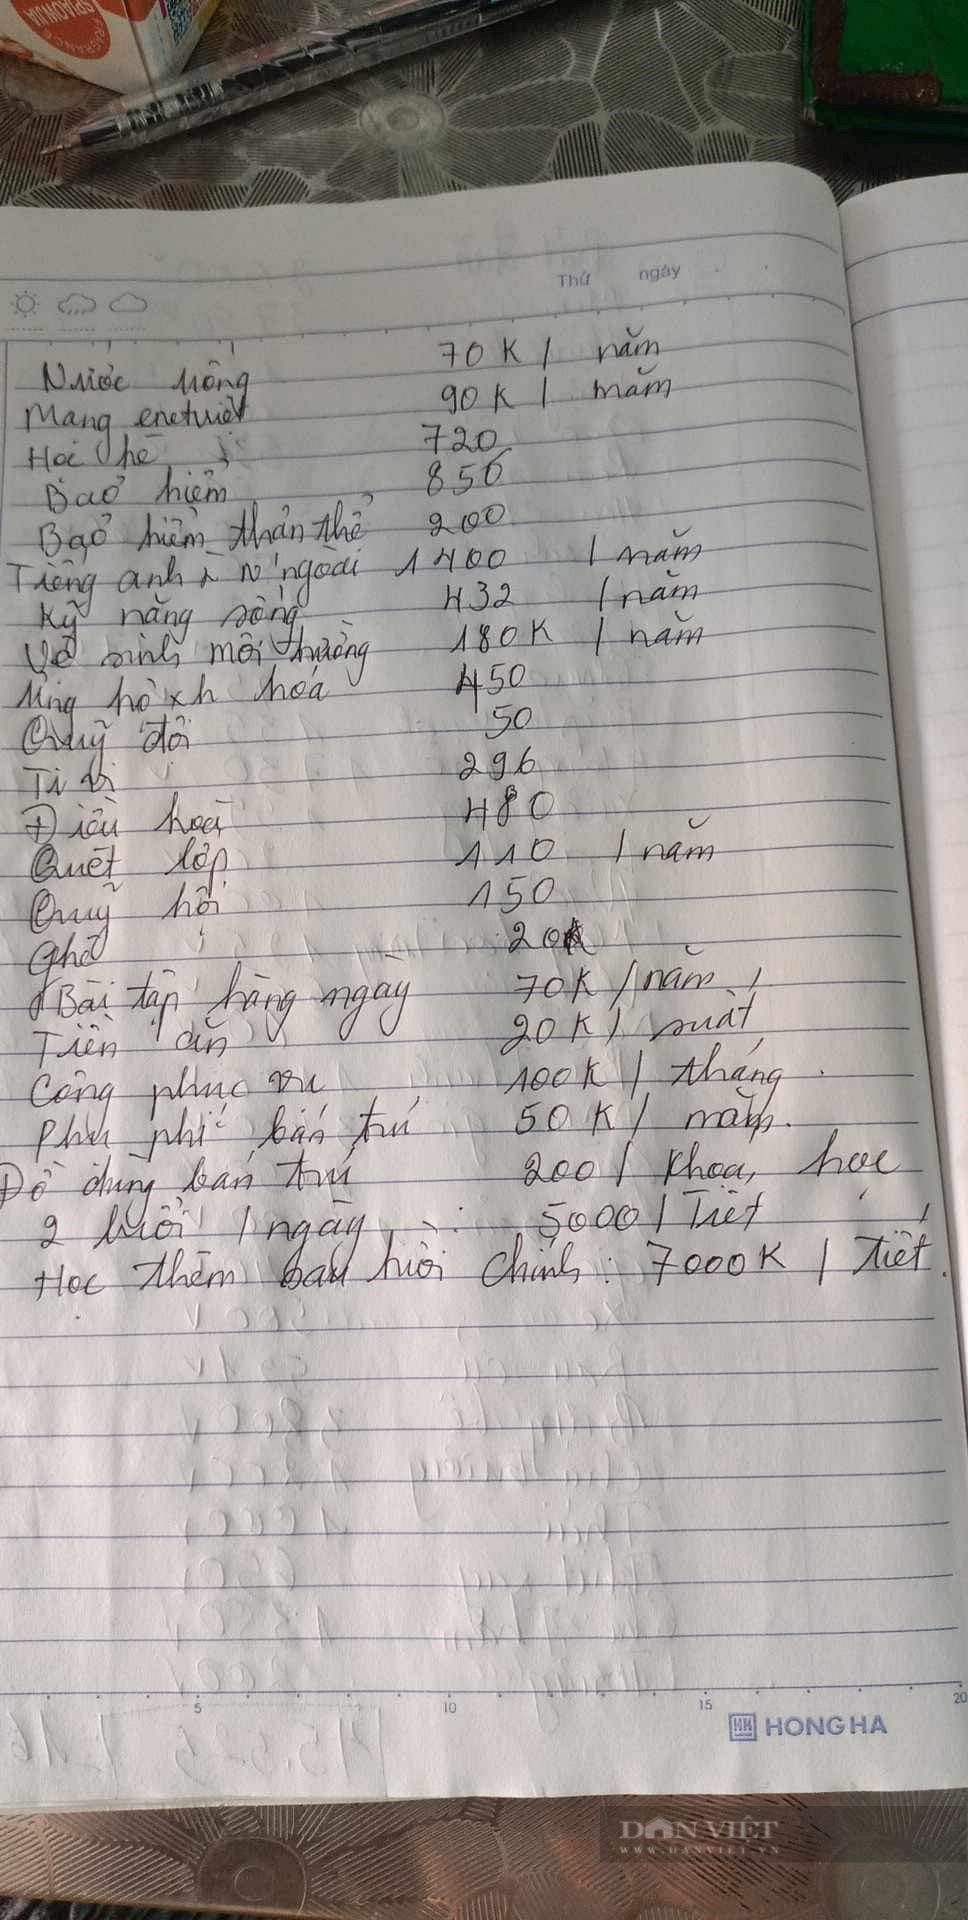 Thứ ngày
Nước uống 70K / năm
Mang enetwiet 90K / năm
Học hè 720
Bảo hiểm 856
Bảo hiểm thân thể 200
Tiếng anh N' ngoài 1400 / năm
Kỹ năng sống 432 / năm
Vệ sinh môi trường 180K / năm
Ủng hộ xh hoá 450
Quỹ đội 50
Ti vi 296
Điều hoà 480
Quét lớp 110 / năm
Quỹ hội 150
Ghế 20K
Bài tập hàng ngày 70K / năm
Tiền ăn 20K / suất
Công phục vụ 100K / tháng
Phụ phí bán trú 50K / năm.
Đồ dùng bán trú 200 / khoá, học
2 buổi / ngày : 5000 / Tiết
Học thêm sau giờ chính : 7000K / tiết.
5 10 15 20
HH HONG HA
DÂN VIỆT
WWW.DANVIET.VN